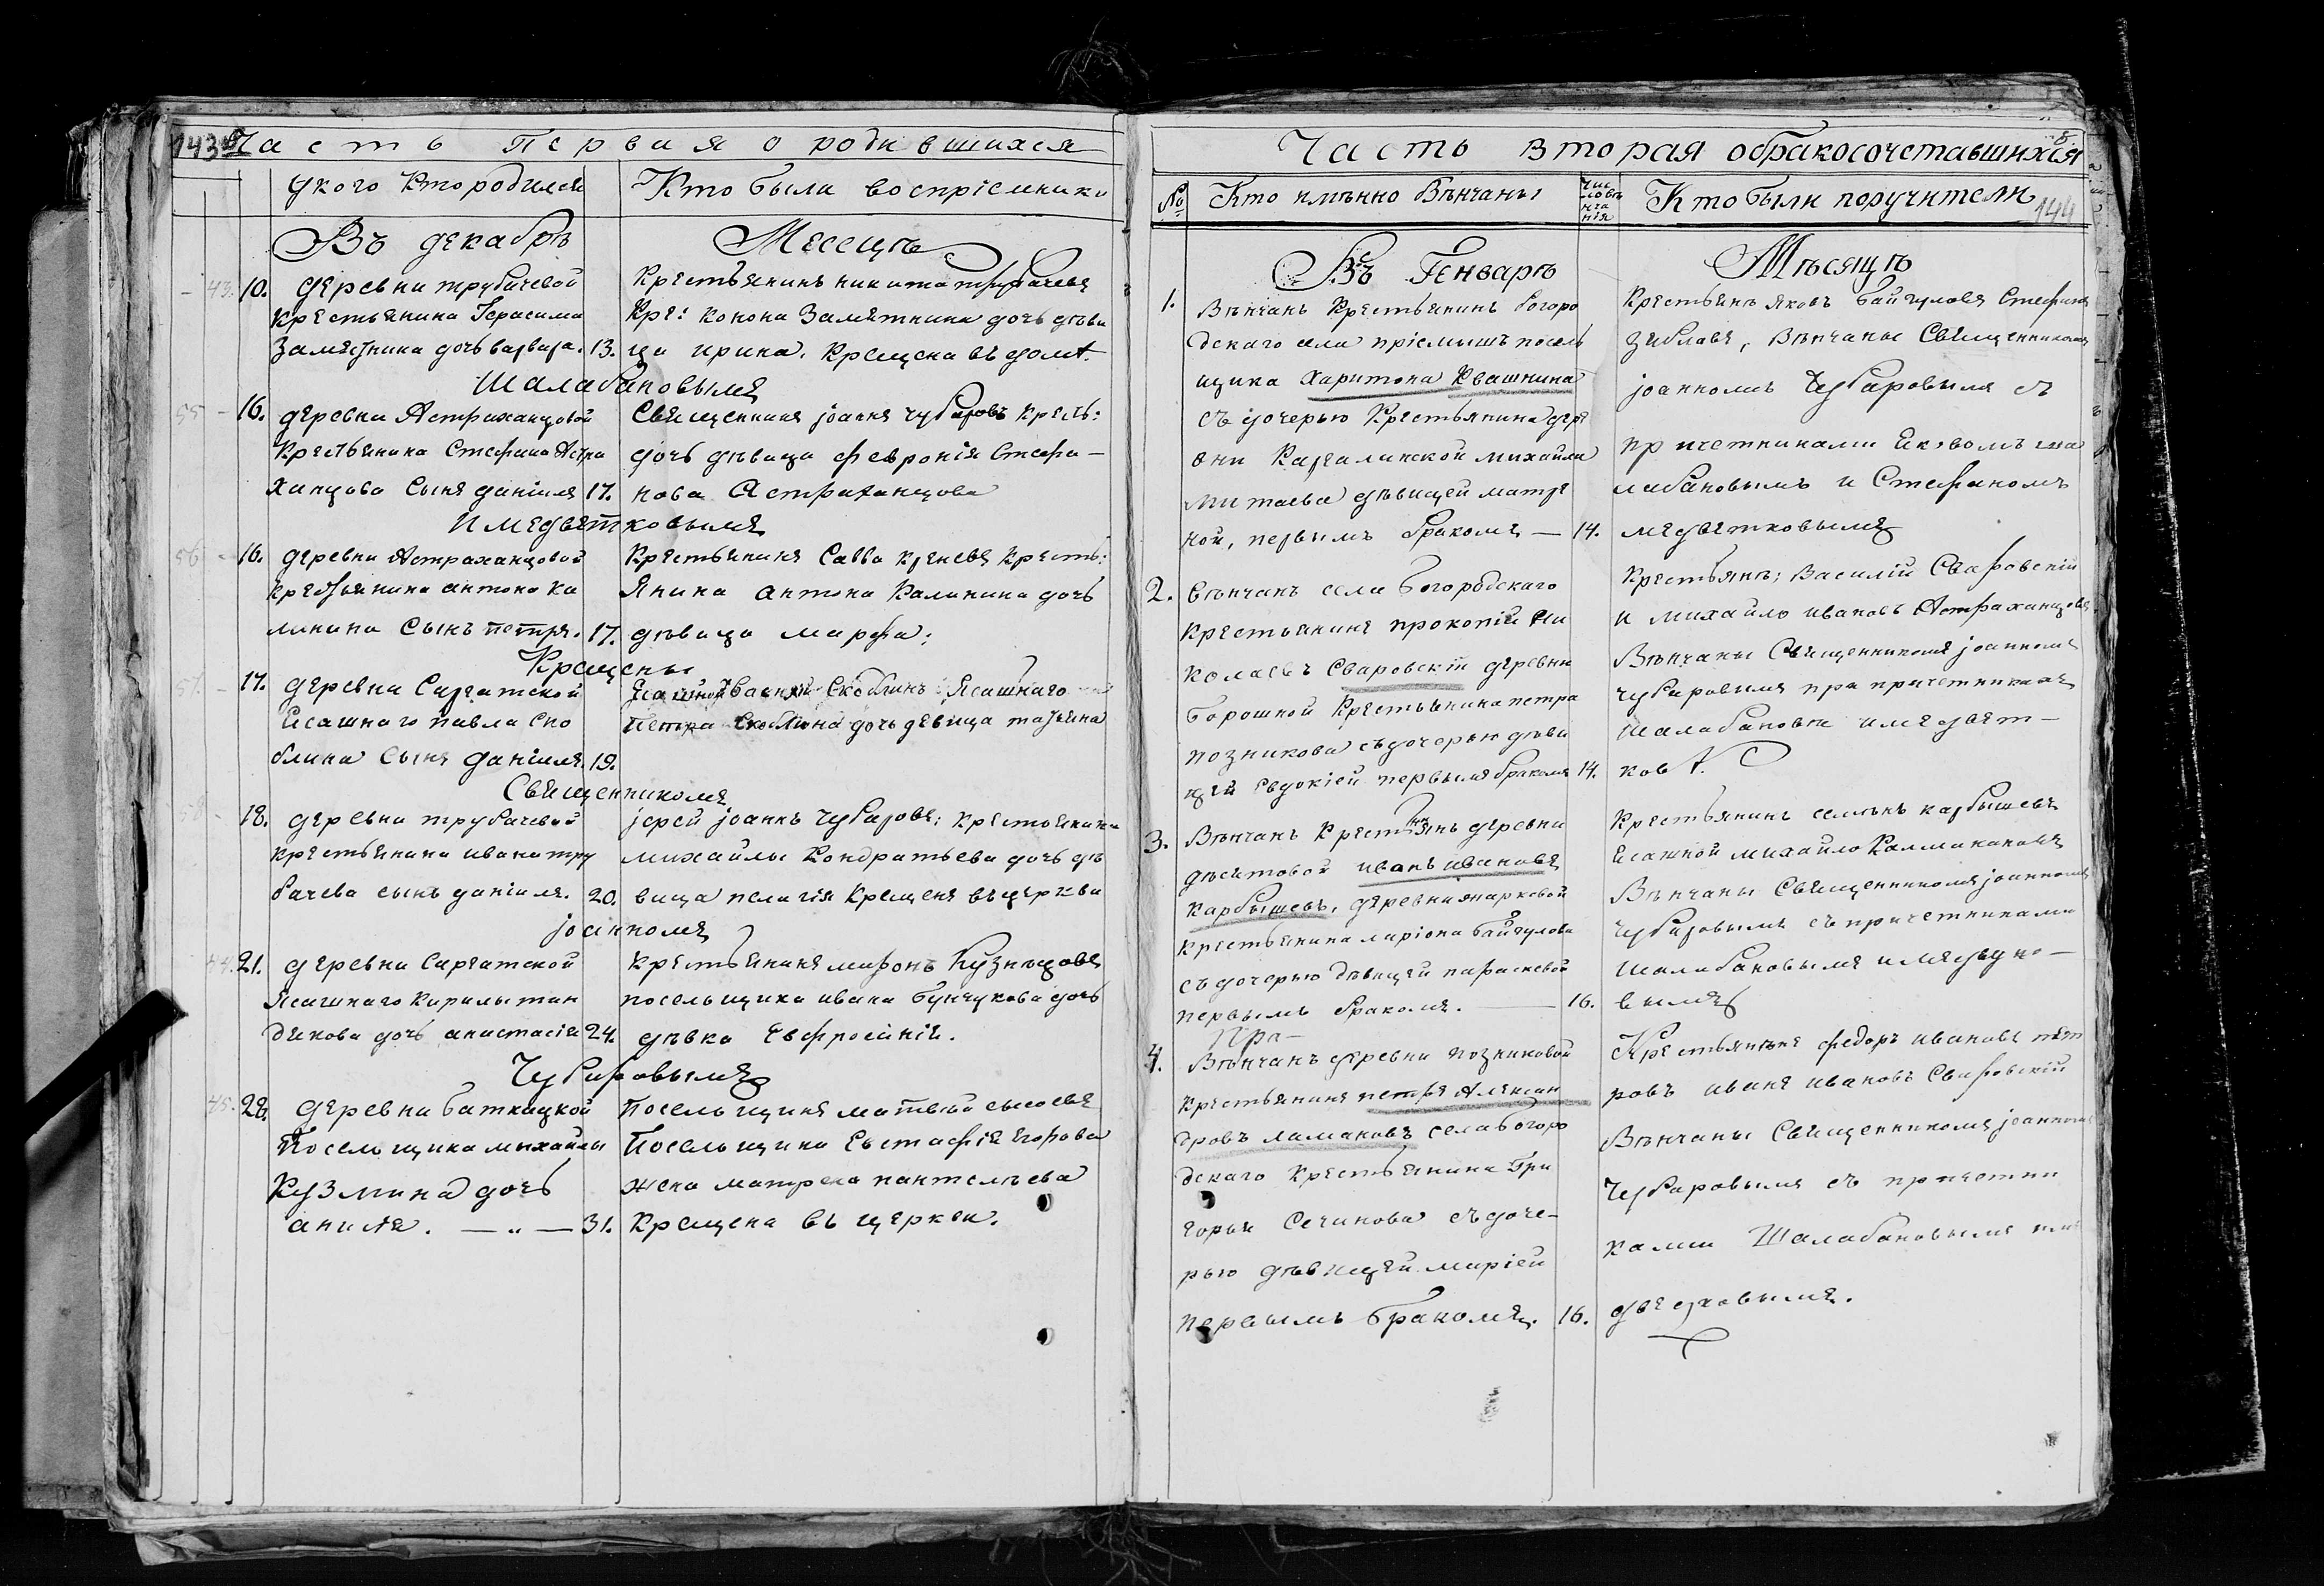 143
Часть Первая о родившихся
Укого Кто родился
Кто были воспріемники
Въ декабрѣ
Месецѣ
43. 10. деревни трубачевой
Крестьянина Герасима
Замятнина дочь варвара. 13.
Крестьянинъ никита трубачевъ
Кре: Конона Замятнина дочь дѣви
ца ирина. Крещена въ домѣ.
Шалабановымъ
55 16. деревни Астраханцовой
Крестьянина Стефана Астра
ханцова Сынъ даніилъ 17.
Священникъ јоаннъ Чубаровъ Кресть:
дочь дѣвица февронія Стефа-
нова Астраханцова
и медвѣтковымъ
56 16. деревни Астраханцовой
Крестьянина антона Ка
линина Сынъ петръ. 17.
Крестьянинъ Савва Креневъ Кресть:
Янина антона Калинина дочь
дѣвица марфа:
Крещены
17. деревни Саргатской
Ясашнаго павла Ско
блина Сынъ даніилъ. 19.
Ясашной Василій Скоблинъ Ясашнаго
Петра Скоблина дочь девица татьяна
Священникомъ
18. деревни трубачевой
крестьянина ивана тру
бачева сынъ даніилъ. 20.
јерей јоаннъ Чубаровъ: крестьянина
михайлы Кондратьева дочь дѣ
вица пелагія Крещенъ въ церкви
јоанномъ
44. 21. деревни Саргатской
Ясашнаго Кирилы тан
дикова дочь анастасія 24.
крестьянинъ миронъ Кузнѣцовъ
посельщика ивана Бунчукова дочь
дѣвка Евфросинія.
Чубаровымъ
45. 28. деревни баткацкой
Посельщика михайлы
Кузмина дочь
анисія. — „ — 31.
Посельщикъ матвѣй сысоевъ
Посельщика Евстафія Егорова
жена матрена пантелѣева
Крещена въ церкви.
Часть вторая обракосочетавшихся
№
Кто имѣнно Вѣнчаны
Чис
ло вѣ
нча
нія
Кто были поручители
144
Въ Генварѣ
Мѣсяцѣ
1. Вѣнчанъ Крестьянинъ Богоро
дскаго села пріемышъ посель
щика Харитона Квашнина
съ дочерью Крестьянина дере
вни Каргалинской михайла
митаева дѣвицей матре
ной, первымъ бракомъ — 14.
Крестьянъ Яковъ байгуловъ Стефанъ
Зибловъ, Вѣнчаны Священникомъ
јоанномъ Чубаровымъ съ
причетниками Яковомъ ша
лабановымъ и Стефаномъ
медвѣтковымъ
2. Вѣнчанъ села Богородскаго
Крестьянинъ прокопій Ни
колаевъ Сваровскій деревни
Борошной Крестьянина петра
позникова съ дочерью дѣви
цей Евдокіей первымъ бракомъ 14.
Крестьянъ; Василій Сваровскій
и михайло ивановъ Астраханцовъ
Вѣнчаны Священникомъ јоанномъ
Чубаровымъ при причетникахъ
Шалабановѣ и медвѣт-
ковѣ.
3. Вѣнчанъ Крестьянинъ деревни
дѣсятовой иванъ ивановъ
Карбышевъ, деревни марковой
Крестьянина ларіона байгулова
съ дочерью дѣвицей параскевой
первымъ бракомъ. — 16.
Крестьянинъ семѣнъ карбышевъ
Ясашной михайло Калмаканов
Вѣнчаны Священникомъ јоанномъ
Чубаровымъ съ причетниками
Шалабановымъ и медвудко-
вымъ
4. Вѣнчанъ деревни позниковой
Крестьянинъ петръ Алексан
дровъ ламановъ села Богоро
дскаго Крестьянина Гри
горья Сечинова съ доче-
рью дѣвицей маріей
первымъ бракомъ. 16.
Крестьянинъ федоръ ивановъ пѣт
ровъ иванъ ивановъ Сваровскій
Вѣнчаны Священникомъ јоанномъ
Чубаровымъ съ причетни
ками Шалабановымъ и ме
двѣдковымъ.